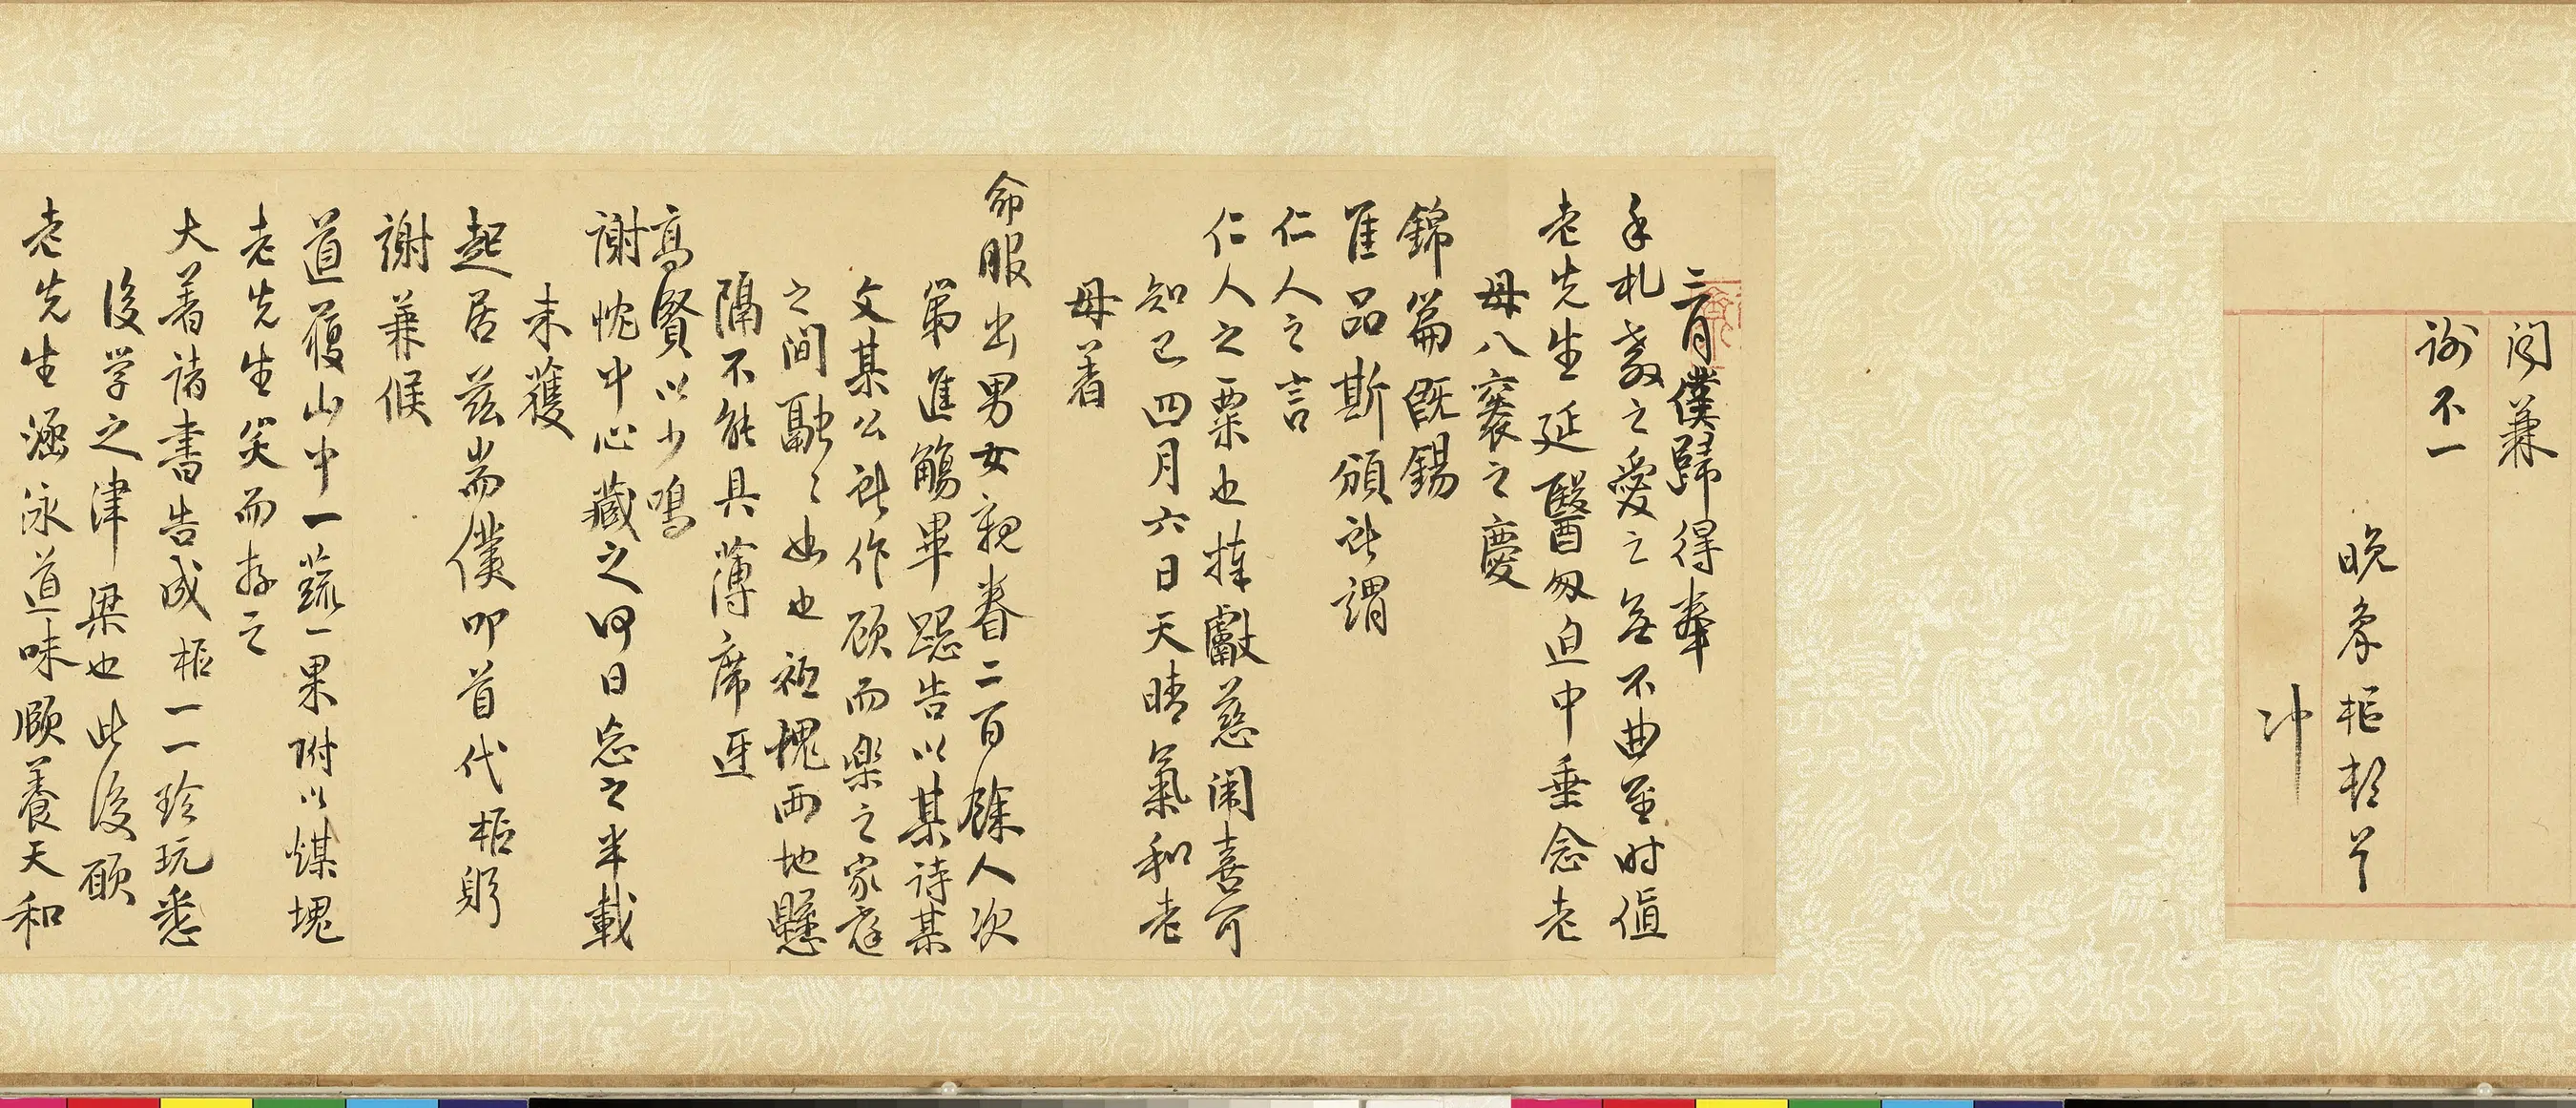 問兼
謝不一
晚象柜頓首
冲
二月僕歸得奉
手札教之愛之無不曲至时值
老先生延醫匆迫中垂念老
母八袠之慶
錦篇既錫
隹品斯頒所謂
仁人之言
仁人之粟也捧獻慈闈喜可
知已四月六日天晴氣和老
母着
命服出男女親眷二百餘人次
第進觴畢跽告以某诗某
文某公所作顧而樂之家庭
之間融々如也祗愧兩地懸
隔不能具薄席迓
高賢以少鳴
謝忱中心藏之何日忘之半載
未獲
起居兹耑僕叩首代柜躬
謝兼候
道履山中一蔬一果附以煤塊
老先生笑而存之
大著诸書告成柜一一珍玩悉
後学之津梁也此後願
老先生涵泳道味頤養天和